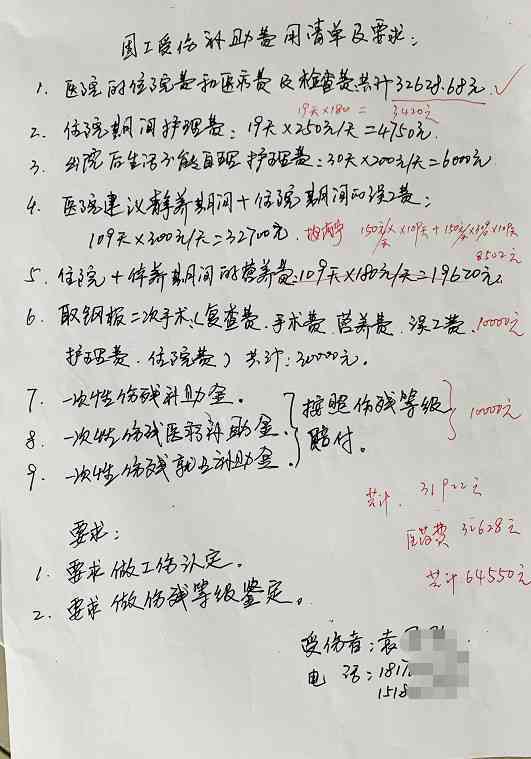 因工受伤补助费用清单及要求:
1. 医院的住院费和医疗费及检查费共计32628.68元.
19天×180 = 3420元
2. 住院期间护理费: 19天×250元/天=4750元.
3. 出院后生活不能自理护理费: 30天×200元/天=6000元
4. 医院建议静养期间+住院期间的误工费:
109天×300元/天=32700元.
150元/天×109天+150元/天
8502元
5. 住院+休养期间的营养费: 109天×180元/天=19620元.
6. 取钢板二次手术(复查费.手术费.营养费.误工费. 10000元
护理费.住院费)共计:30000元.
7. 一次性伤残补助金.
8. 一次性伤残医疗补助金.
9. 一次性伤残就业补助金.
按照伤残等级
赔付.
10000元
共计. 31922元
医药费 32628元
共计64550元
要求:
1. 要求做工伤认定.
2. 要求做伤残等级鉴定.
受伤者:袁
电 话:1817
1518